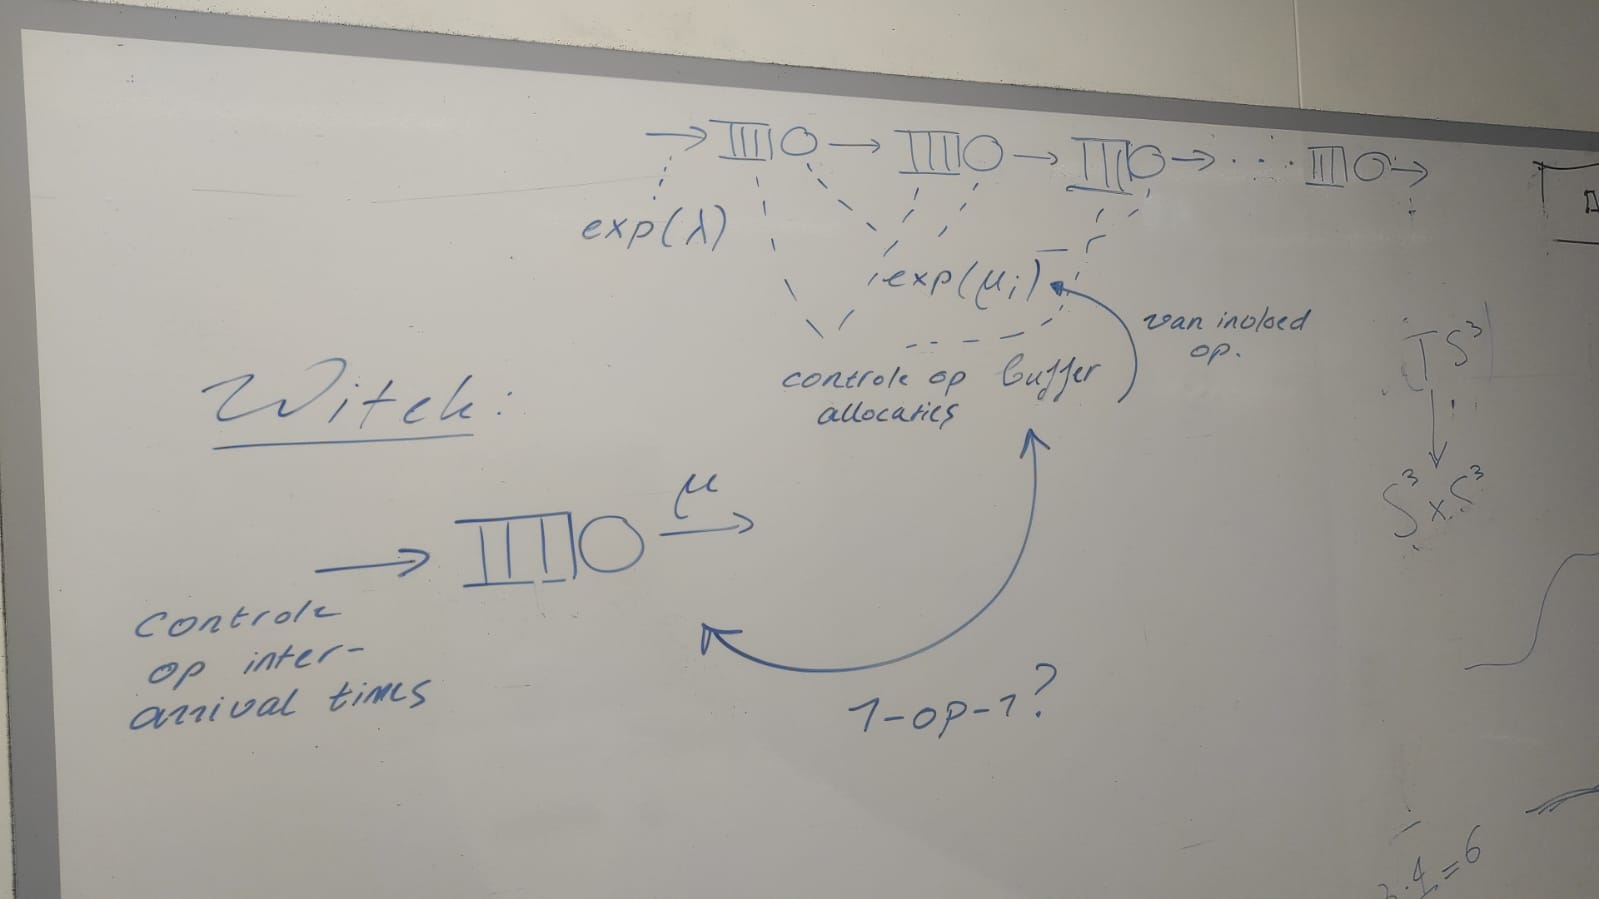 exp(λ)
exp(μi)
van invloed
op.
controle op buffer
allocaties
Witek:
μ
Controle
op inter-
arrival times
1-op-1?
TS³
S³×S³
=6